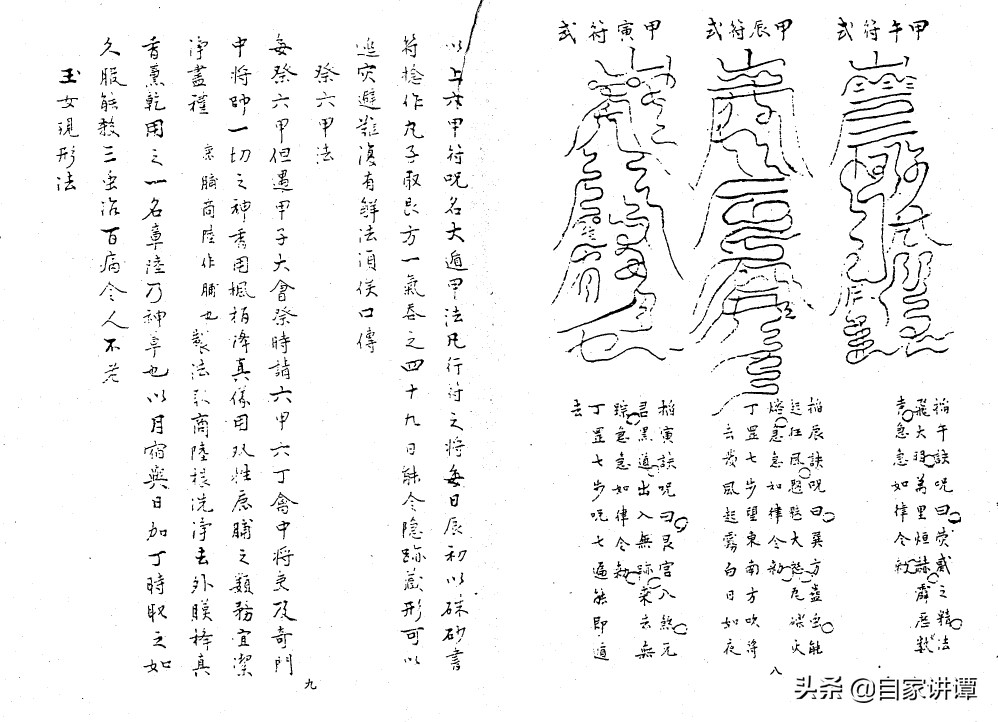 甲午符式
掐午訣咒曰熒惑之精法
飛大翔萬里烜赫霹靂數
去急急如律令勑
甲辰符式
掐辰訣咒曰巽方蠱虫能
起狂風
急急如律令勑
丁罡七步望東南方吹將
去發風起霧白日如夜
甲寅符式
掐寅訣咒曰艮宮入煞元
君黑道出入無跡來去無
踪急急如律令勑
丁罡七步咒七遍無即遁
去
八
以上六甲符咒名大遁甲法凡行符之將每日辰初以硃砂書
符捻作丸子取艮方一氣吞之四十九日能令隐跡藏形可以
逃灾避難復有鮮法須俟口傳
祭六甲法
每祭六甲但遇甲子大會祭時請六甲六丁會中將吏及奇門
中將帥一切之神香用楓柏降真儀用双牲鹿脯之類務宜潔
淨盡禮 鹿脯商陸作脯也 製法取商陸根洗淨去外膜檡真
香薰乾用之一名章陸乃神草也以月宿與日加丁時取之如
久服能殺三虫治百病令人不老
玉女現形法
九
头条 @自家讲谭